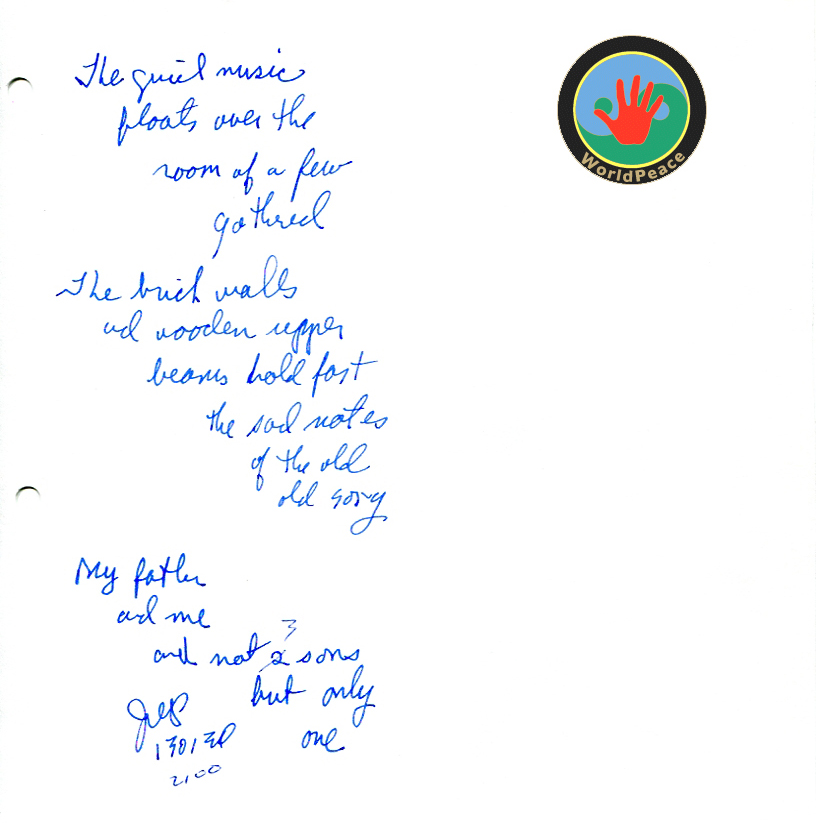 The quiet music
floats over the
room of a few
gathered
The brick walls
and wooden upper
beams hold fast
the sad notes
of the old
old song
My father
and me
and not 3 sons
but only
one
2100
WorldPeace